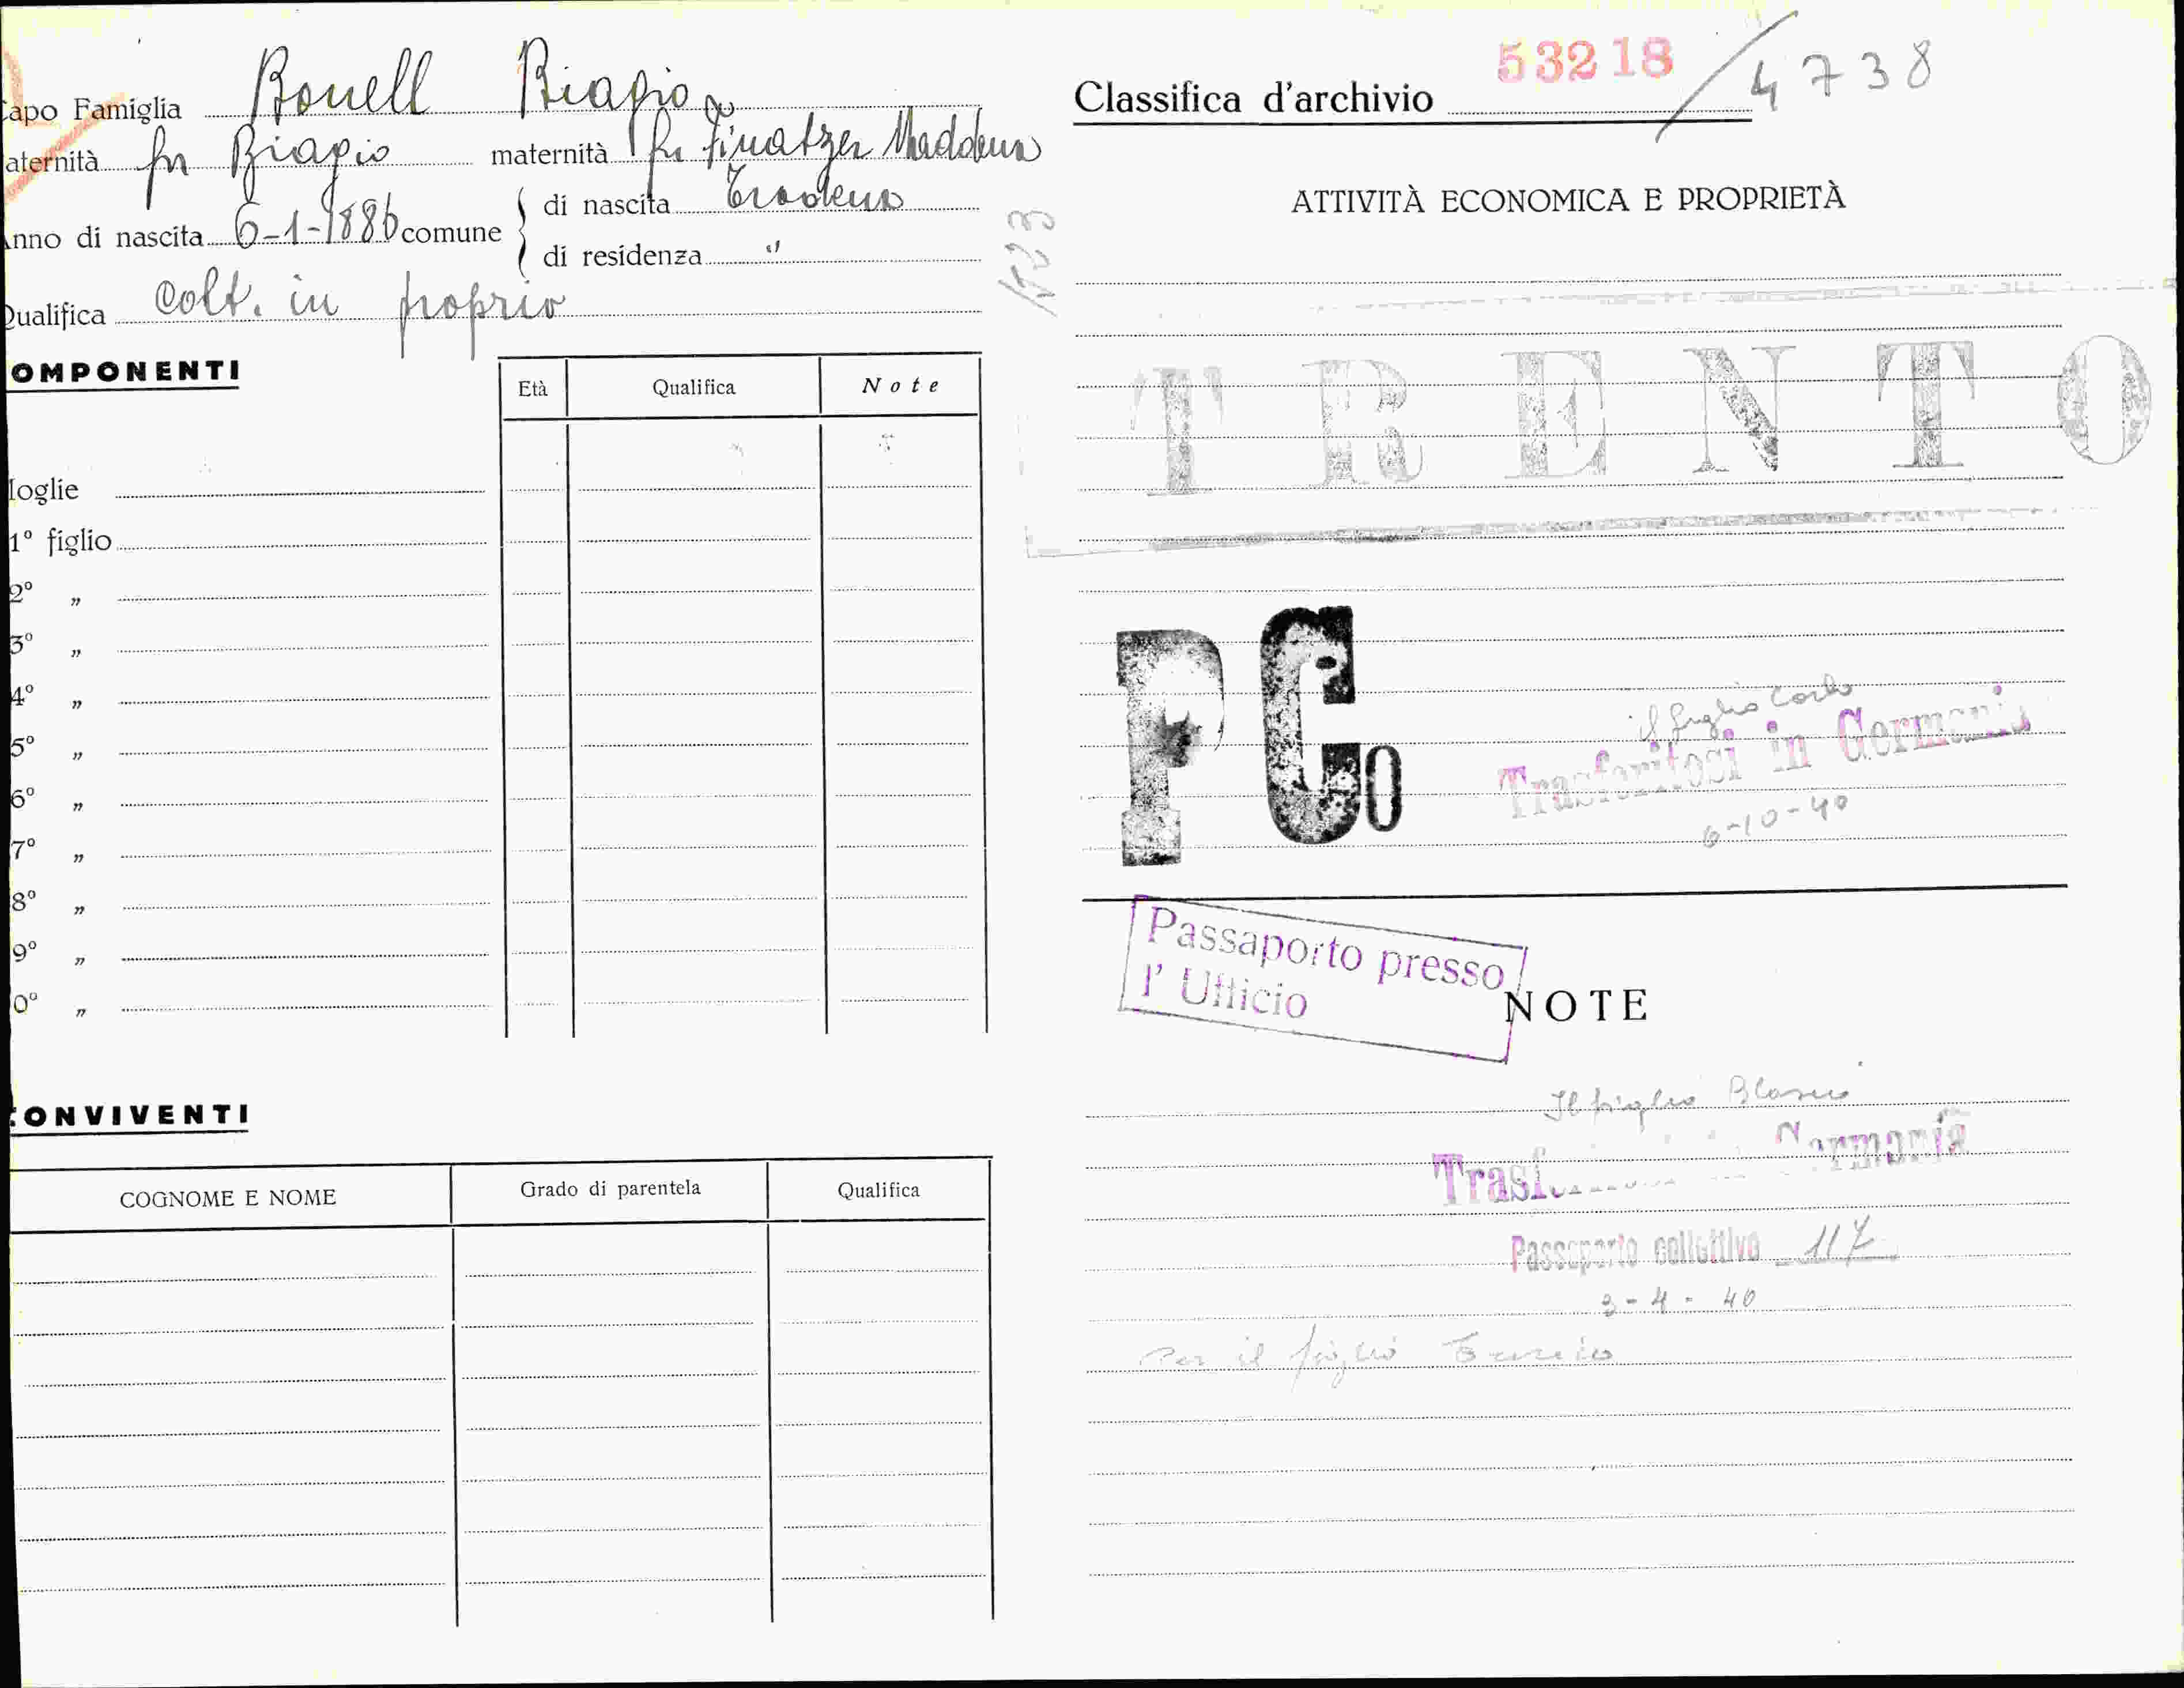 apo Famiglia Bonell Biagio
aternità fu Biagio maternità fu Finatzer Maddalena
nno di nascita 6-1-1886 comune di nascita Trodena
di residenza "
Qualifica Colt. in proprio
OMPONENTI
Età Qualifica Note
oglie
1° figlio
2° "
3° "
4° "
5° "
6° "
7° "
8° "
9° "
0° "
ONVIVENTI
COGNOME E NOME Grado di parentela Qualifica
53218 / 4738
Classifica d'archivio
ATTIVITÀ ECONOMICA E PROPRIETÀ
TRENTO
PCo
il figlio Carlo
Trasferitosi in Germania
6-10-40
Passaporto presso
l'Ufficio
NOTE
Il figlio
Germania
Passaporto collettivo 117
3-4-40
Per il figlio